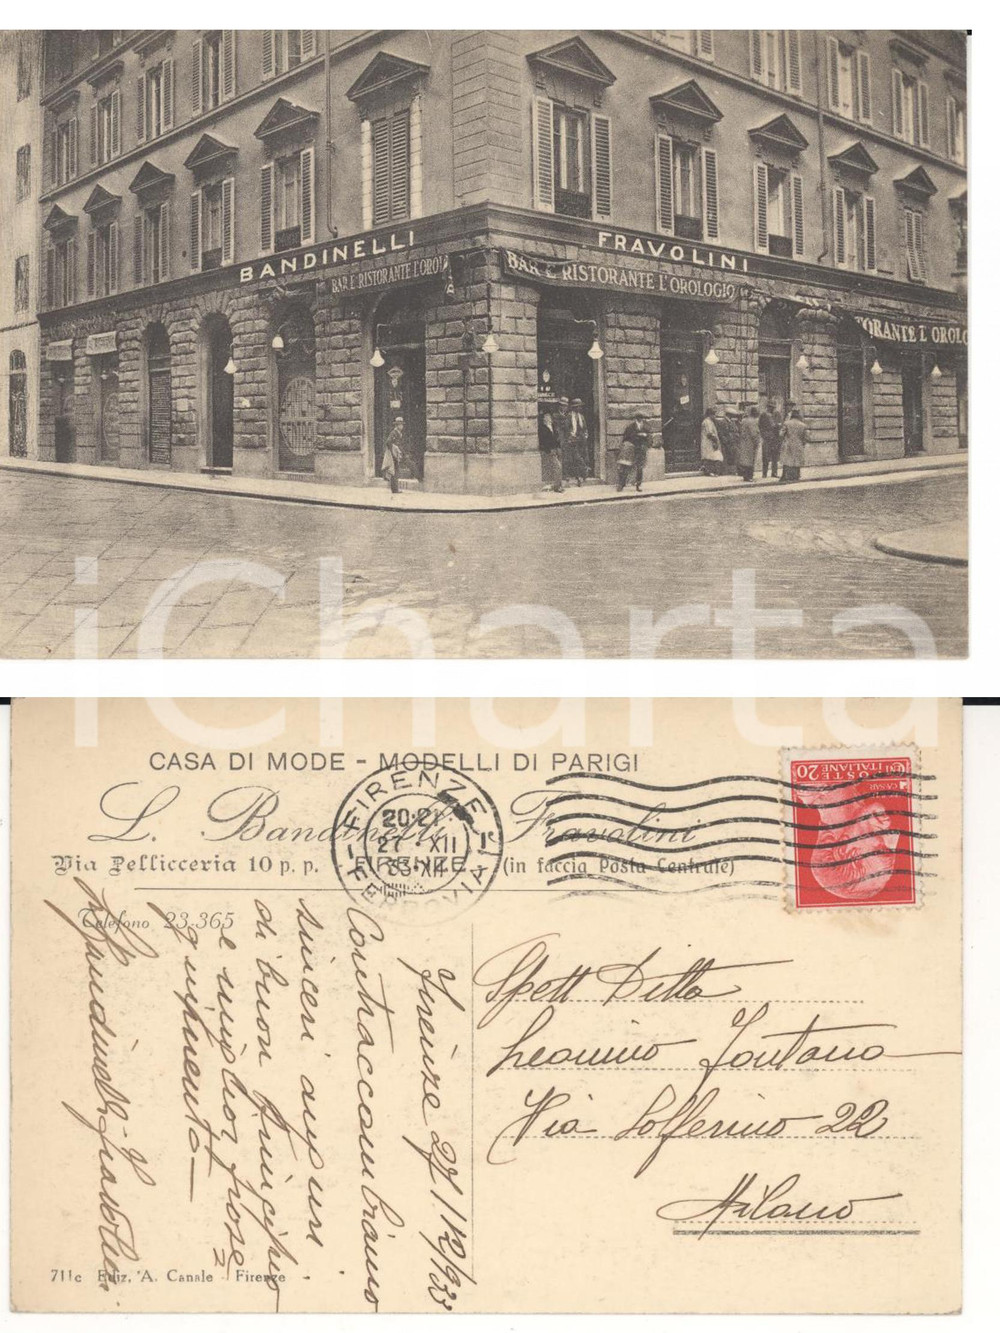 BANDINELLI
FRAVOLINI
BAR E RISTORANTE L'OROLO
BAR E RISTORANTE L'OROLOGIO
TORANTE L'OROLO
iCharta
CASA DI MODE - MODELLI DI PARIGI
L. Bandinelli Fravolini
Via Pellicceria 10 p. p. FIRENZE (in faccia Posta Centrale)
Telefono 23-365
FIRENZE
20-21
27 XII
33-XII
FERROVIA
POSTE ITALIANE
CENT 20
CAESAR
Firenze 27/12/933
Contraccambiamo
sinceri auguri
di buon Principio
e miglior prose
guimento
L. Bandinelli-Fravolini
Spett Ditta
Leonino Fontana
Via Solferino 22
Milano
711c Ediz. A. Canale - Firenze